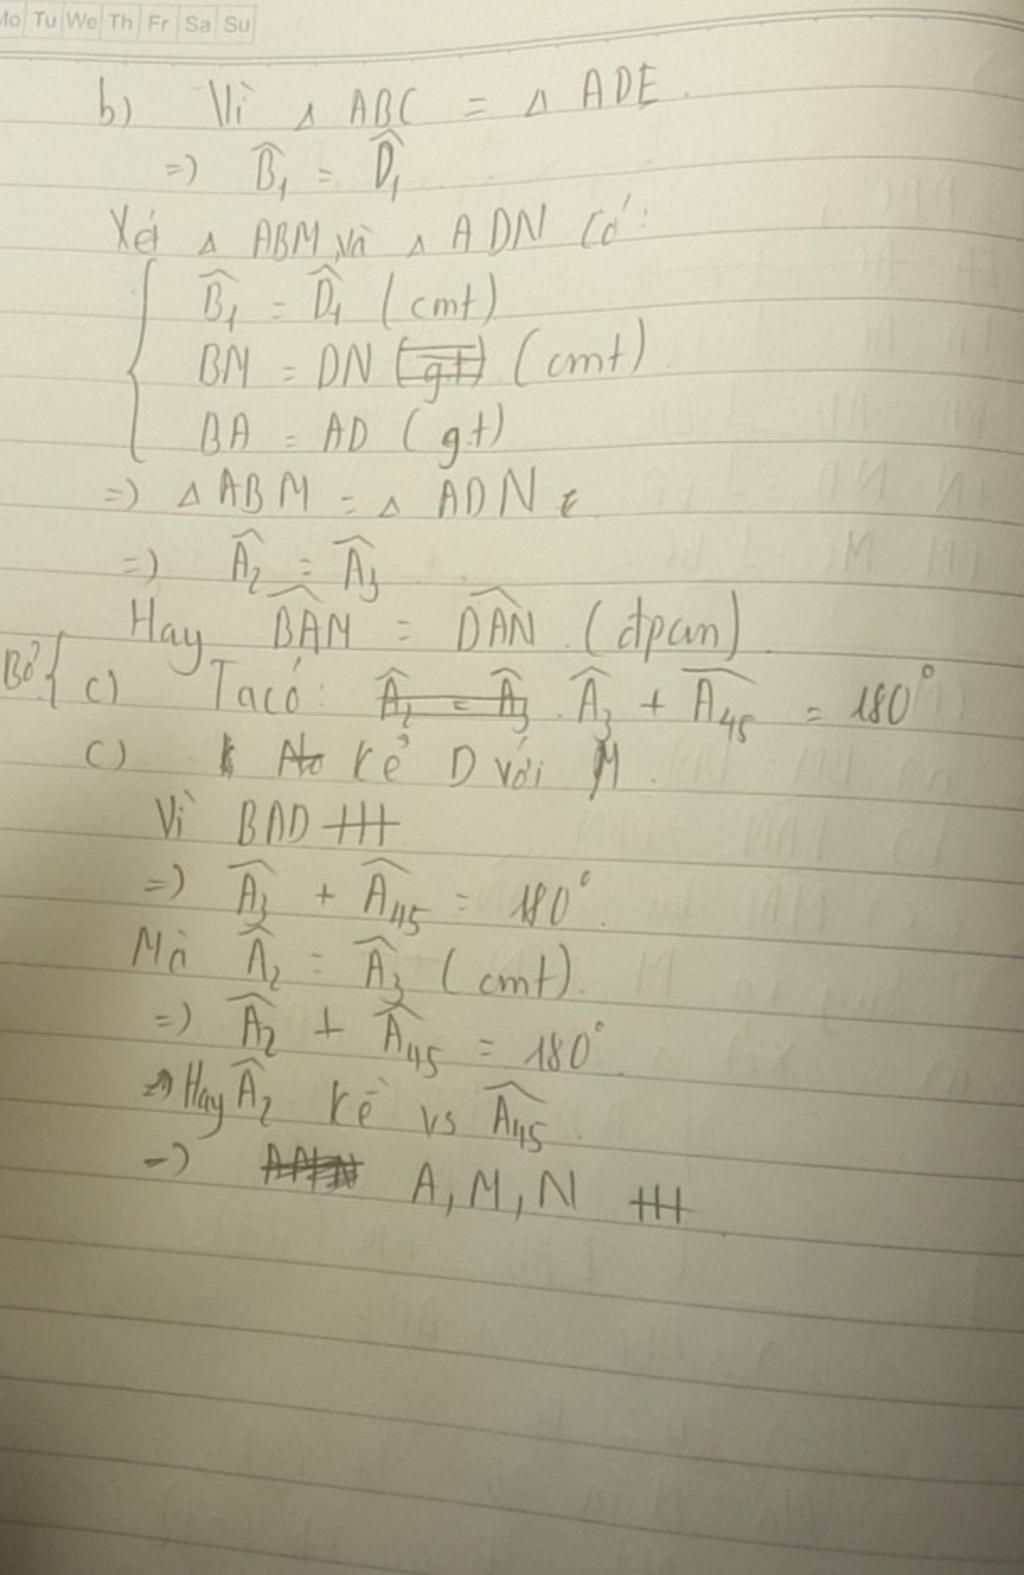 Mo Tu We Th Fr Sa Su
b) Vì △ ABC = △ ADE.
=> B̂₁ = D̂₁
Xét △ ABM và △ ADN có:
B̂₁ = D̂₁ (cmt)
BM = DN (gt) (cmt).
BA = AD (gt)
=> △ ABM = △ ADN
=> Â₂ = Â₃
Hay BAM = DAN. (đpcm).
Bỏ { c) Ta có: Â₂ = Â₃. Â₃ + Â₄₅ = 180°
c) Kẻ D với M.
Vì BAD +++
=> Â₃ + Â₄₅ = 180°.
Mà Â₂ = Â₃ (cmt).
=> Â₂ + Â₄₅ = 180°.
Hay Â₂ kề vs Â₄₅.
=> A, M, N +++